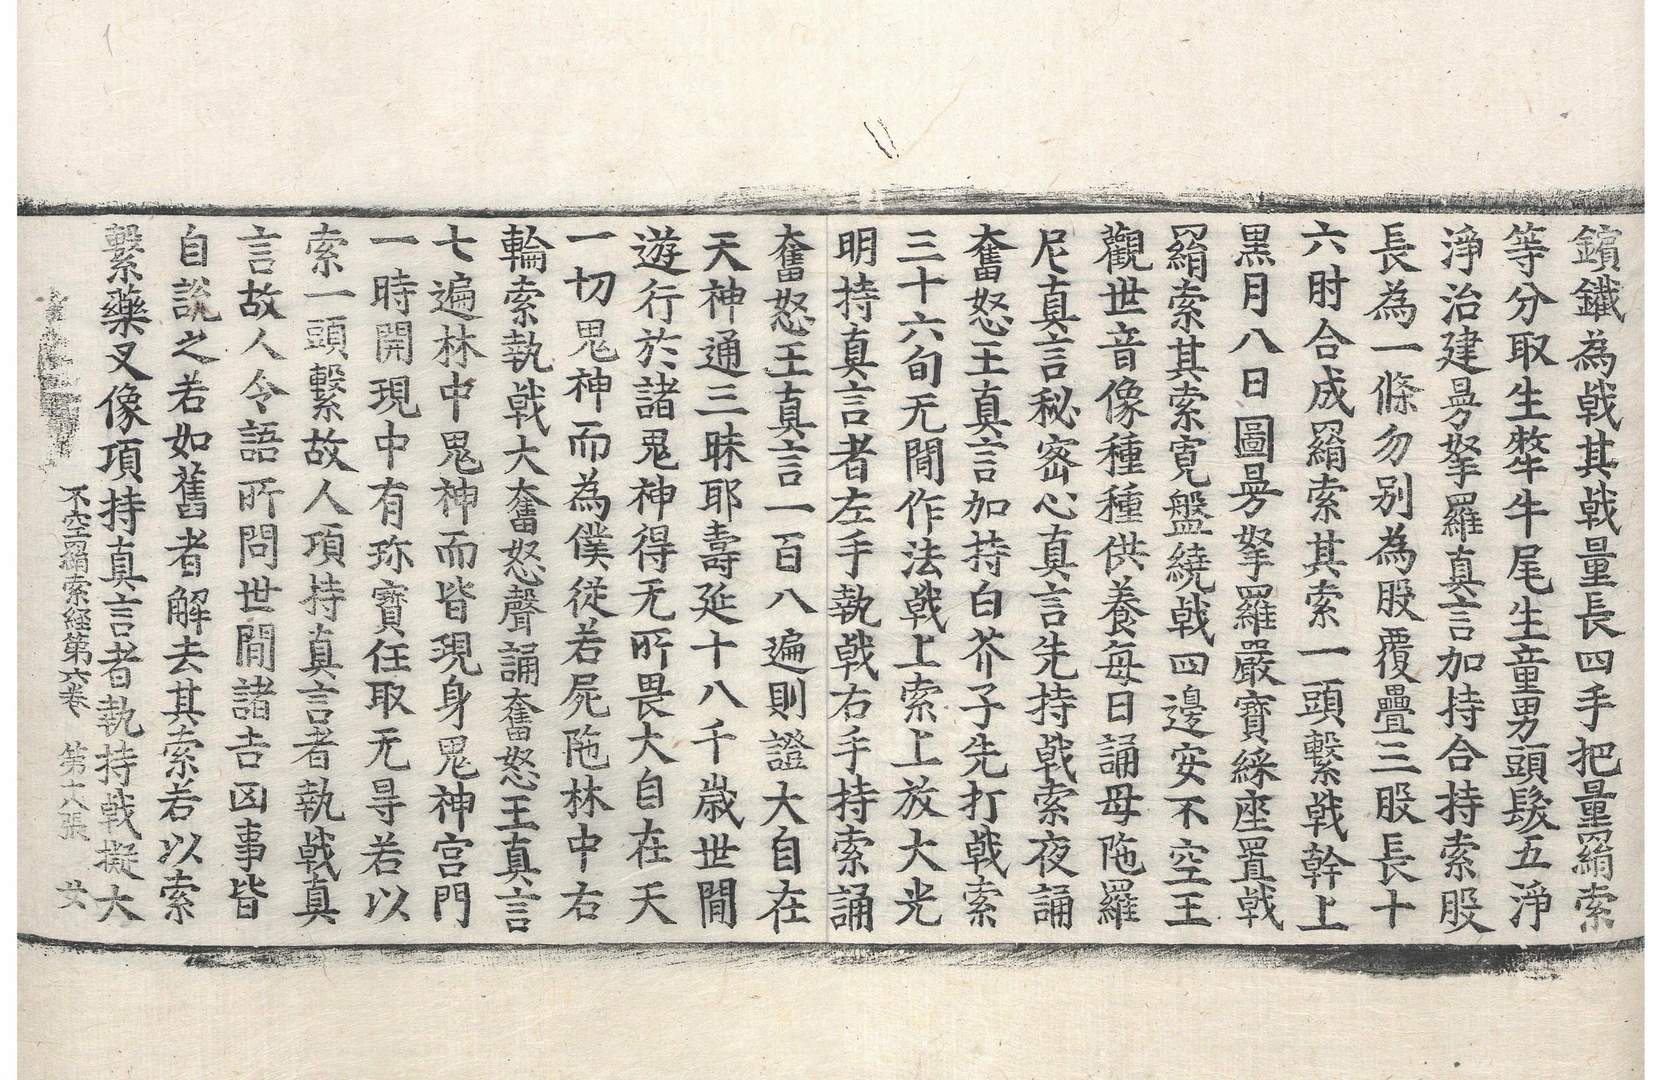 鑌鐵為戟其戟量長四手把量羂索
等分取生犛牛尾生童男頭髮五淨
淨治建曼拏羅真言加持合持索股
長為一條勿別為股覆疊三股長十
六肘合成羂索其索一頭繫戟幹上
黑月八日圖曼拏羅嚴寶綵座置戟
羂索其索寬盤繞戟四邊安不空王
觀世音像種種供養每日誦母陁羅
尼真言秘密心真言先持戟索夜誦
奮怒王真言加持白芥子先打戟索
三十六旬无間作法戟上索上放大光
明持真言者左手執戟右手持索誦
奮怒王真言一百八遍則證大自在
天神通三昧耶壽延十八千歲世間
遊行於諸鬼神得无所畏大自在天
一切鬼神而為僕從若屍陁林中右
輪索執戟大奮怒聲誦奮怒王真言
七遍林中鬼神而皆現身鬼神宮門
一時開現中有珎寶任取无㝵若以
索一頭繫故人項持真言者執戟真
言故人令語所問世間諸吉凶事皆
自說之若如舊者解去其索若以索
繫藥叉像項持真言者執持戟擬大
不空羂索経第六卷 第十八張 女